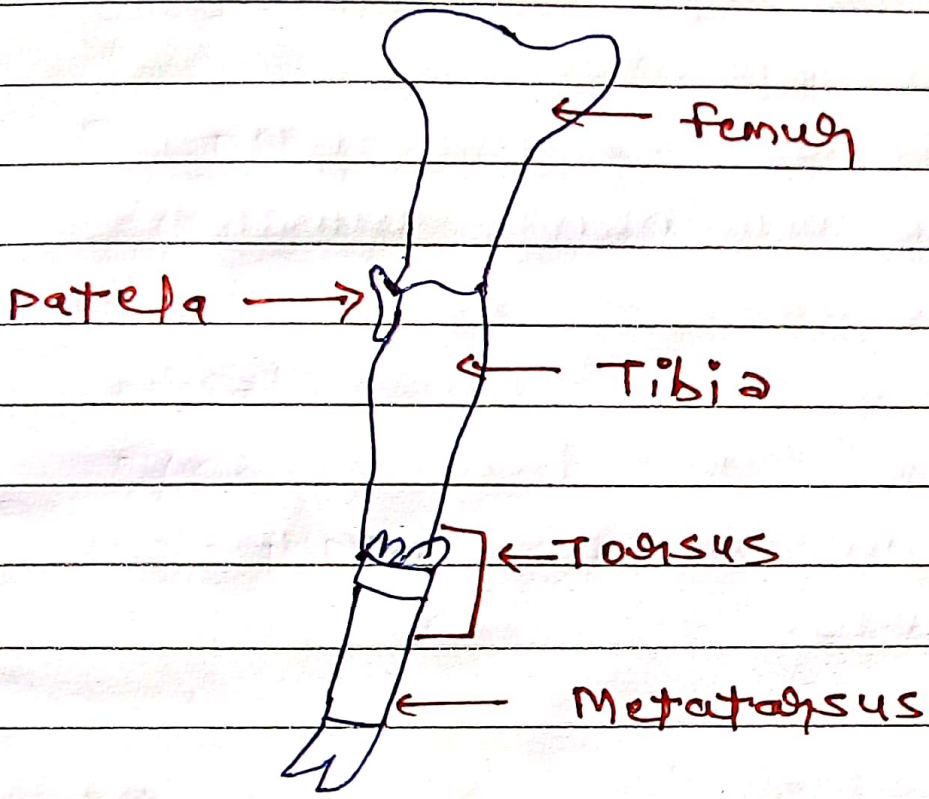 femur
patela
Tibia
Tarsus
Metatarsus